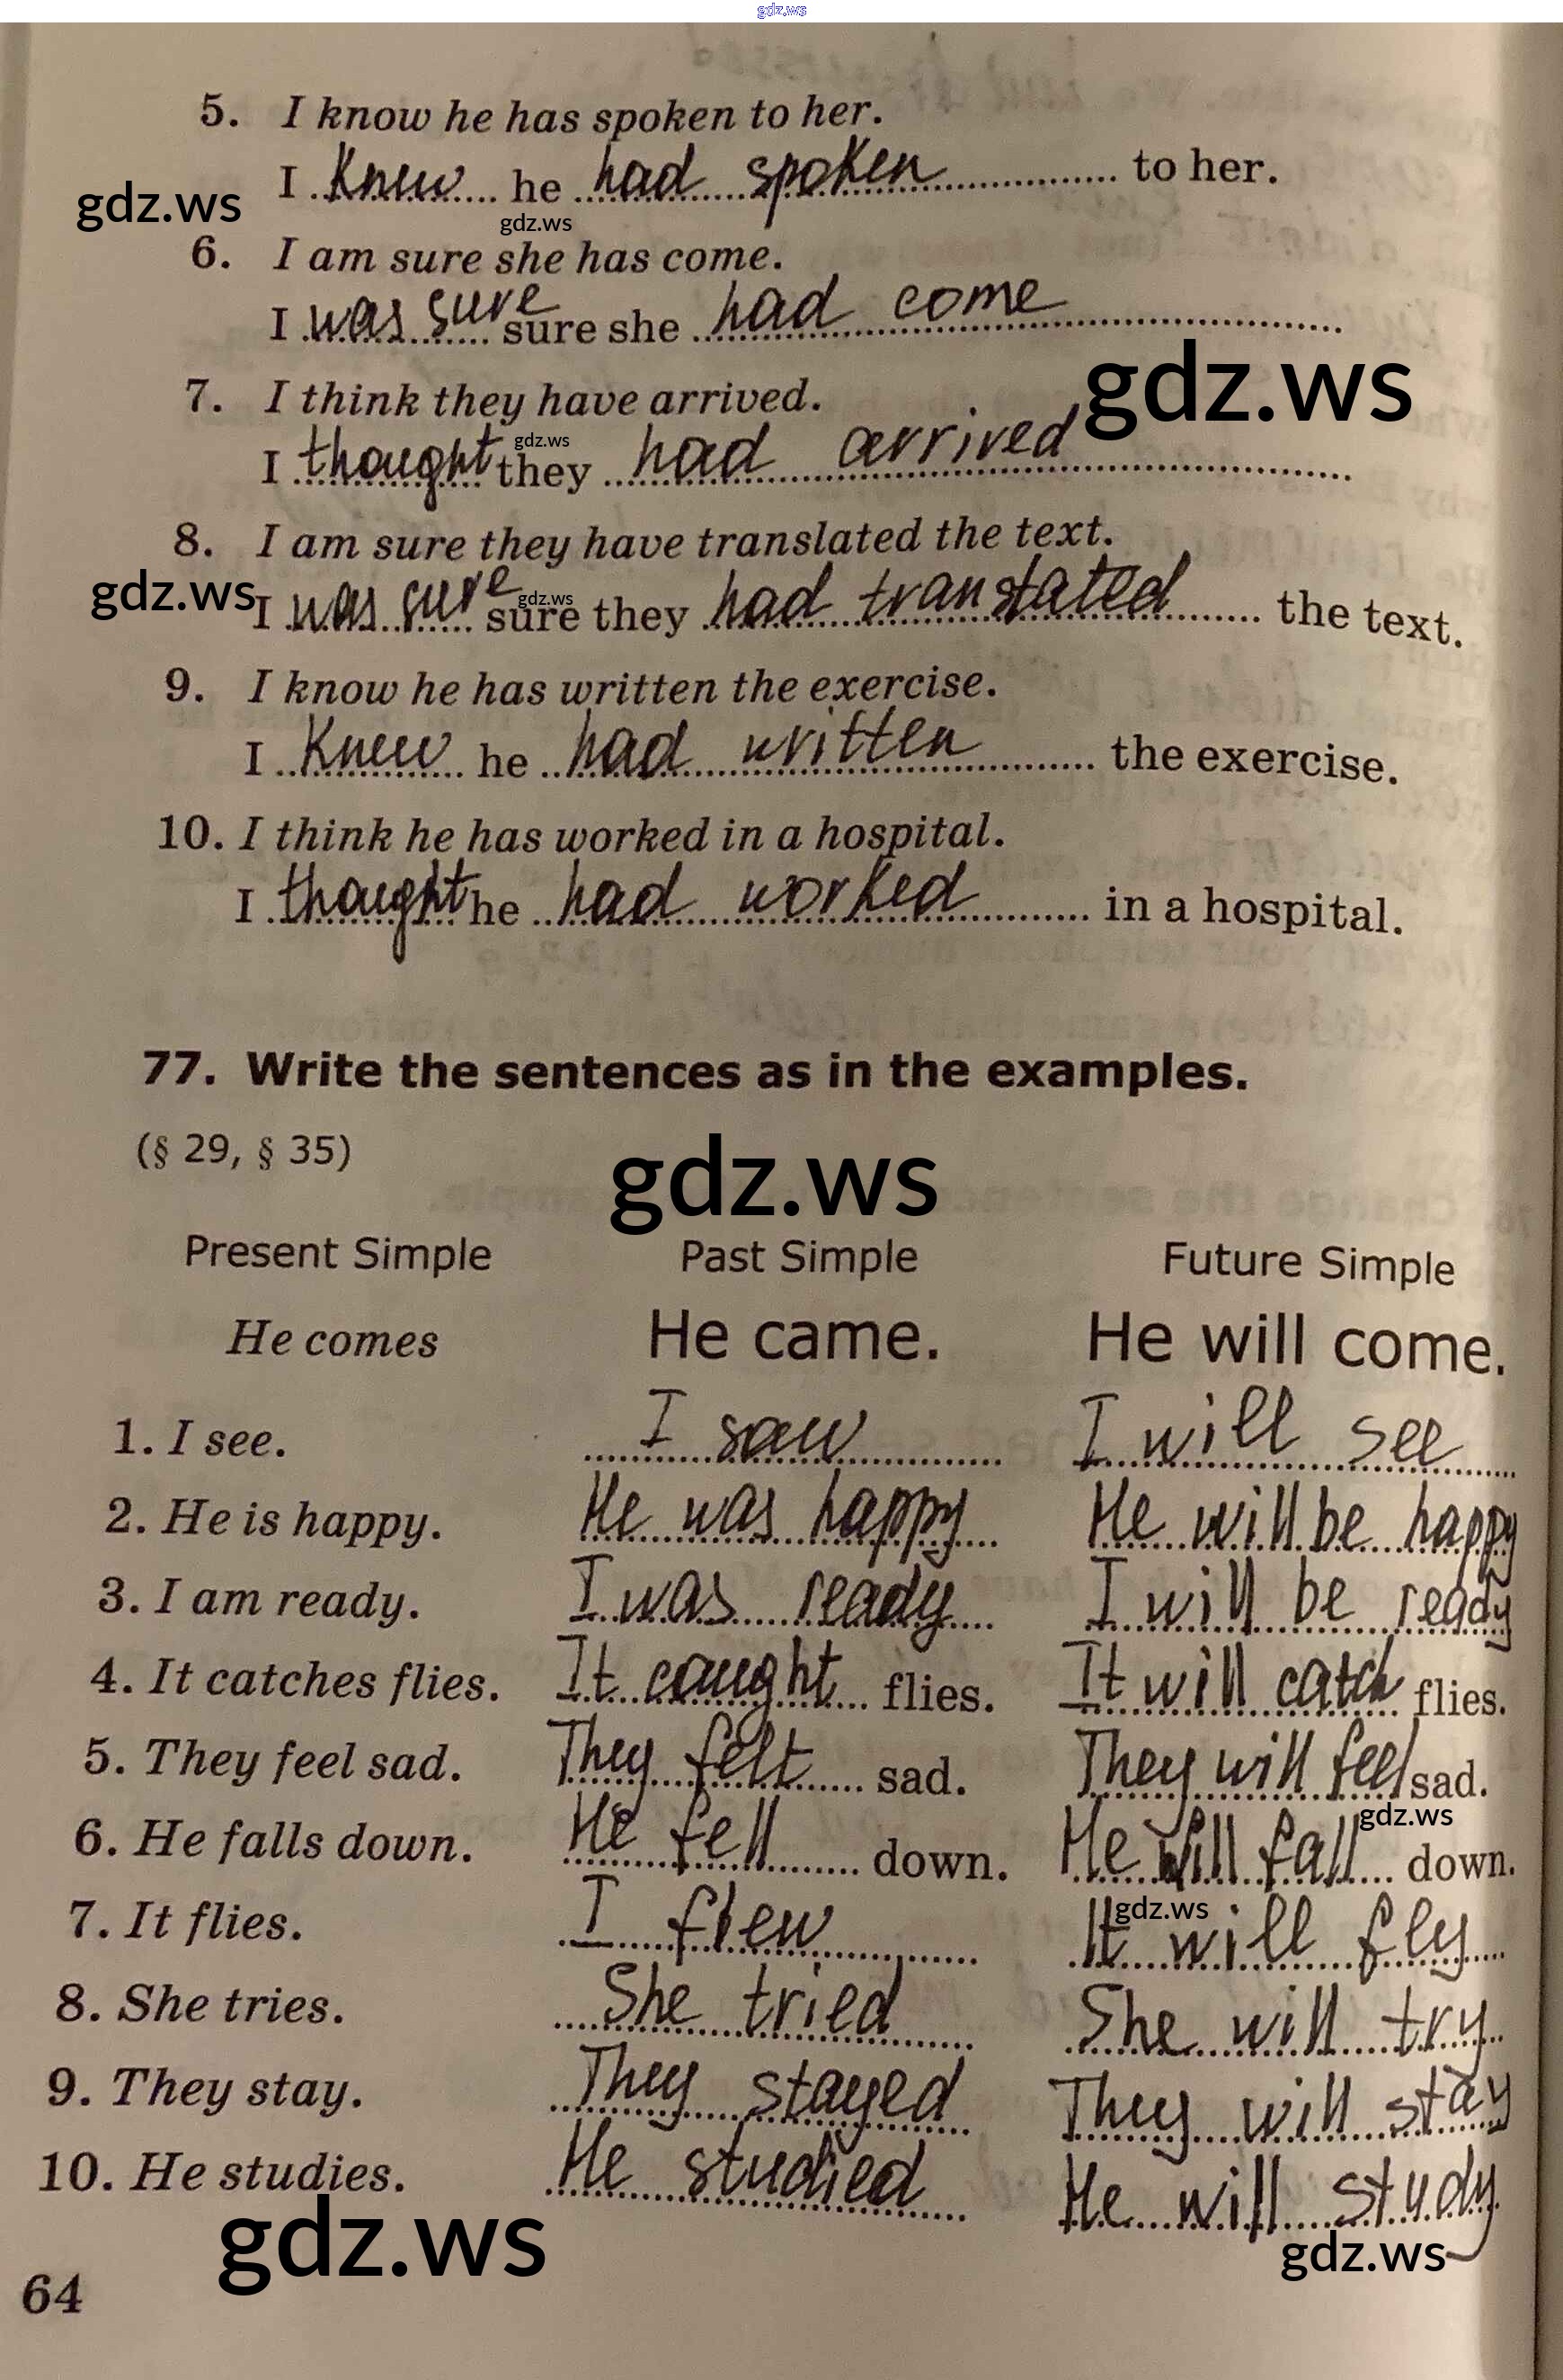 gdz.ws
5. I know he has spoken to her.
I knew he had spoken to her.
gdz.ws
gdz.ws
6. I am sure she has come.
I was sure sure she had come
gdz.ws
7. I think they have arrived.
gdz.ws
I thought they had arrived
8. I am sure they have translated the text.
gdz.ws
gdz.ws
I was sure sure they had translated the text.
9. I know he has written the exercise.
I knew he had written the exercise.
10. I think he has worked in a hospital.
I thought he had worked in a hospital.
77. Write the sentences as in the examples.
(§ 29, § 35)
gdz.ws
Present Simple Past Simple Future Simple
He comes He came. He will come.
1. I see. I saw I will see
2. He is happy. He was happy He will be happy
3. I am ready. I was ready I will be ready
4. It catches flies. It caught flies. It will catch flies.
5. They feel sad. They felt sad. They will feel sad.
gdz.ws
6. He falls down. He fell down. He will fall down.
gdz.ws
7. It flies. I flew It will fly
8. She tries. She tried She will try
9. They stay. They stayed They will stay
10. He studies. He studied He will study
gdz.ws
gdz.ws
64